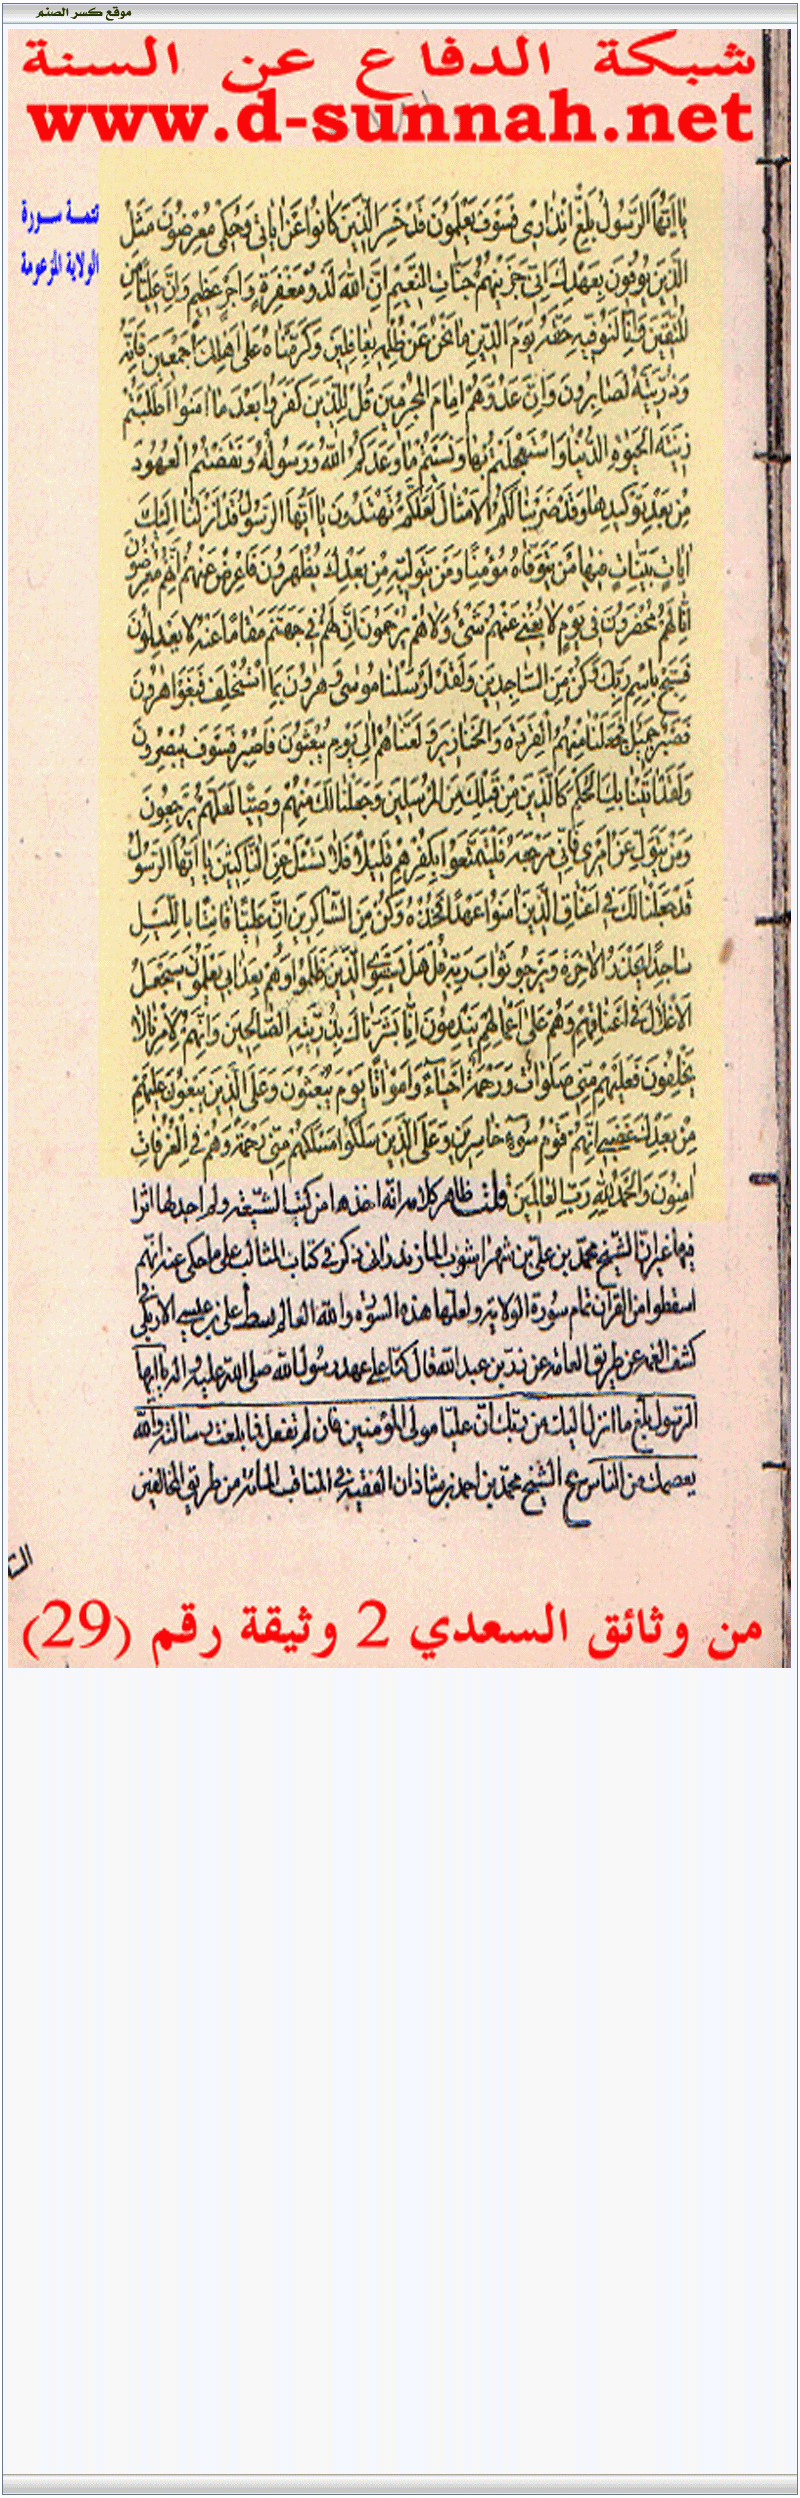 موقع كسر الصنم
شبكة الدفاع عن السنة
www.d-sunnah.net
تتمة سورة
الولاية المزعومة
يا ايها الرسول بلغ انذاري فسوف يعلمون قد خسر الذين كانوا عن اياتي وحكمي معرضون مثل
الذين يوفون بعهدك اني جزيتهم جنات النعيم ان الله لذو مغفرة واجر عظيم وان عليا من
المتقين وانا لنوفيه حقه يوم الدين ما نحن عن ظلمه بغافلين وكرمناه على اهلك اجمعين فانه
وذريته لصابرون وان عدوهم امام المجرمين قل للذين كفروا بعد ما امنوا اطلبتم
زينة الحيوة الدنيا واستعجلتم بها ونسيتم ما وعدكم الله ورسوله ونقضتم العهود
من بعد توكيدها وقد ضربنا لكم الامثال لعلكم تهتدون يا ايها الرسول قد انزلنا اليك
ايات بينات فيها من يتوفاه مؤمنا ومن يتوليه من بعدك يظهرون فاعرض عنهم انهم معرضون
انا لهم محضرون في يوم لا يغني عنهم شئ ولا هم يرحمون ان لهم في جهنم مقاما عنه لا يعدلون
فسبح باسم ربك وكن من الساجدين ولقد ارسلنا موسى وهرون بما استخلف فبغوا هرون
فصبر جميل فجعلنا منهم القردة والخنازير ولعناهم الى يوم يبعثون فاصبر فسوف يبصرون
ولقد اتينا بك الحكم كالذين من قبلك من المرسلين وجعلنا لك منهم وصيا لعلهم يرجعون
ومن يتول عن امري فاني مرجعه فليتمتعوا بكفرهم قليلا فلا تسئل عن الناكثين يا ايها الرسول
قد جعلنا لك في اعناق الذين امنوا عهدا فخذه وكن من الشاكرين ان عليا قانتا بالليل
ساجدا يحذر الاخرة ويرجو ثواب ربه قل هل يستوي الذين ظلموا وهم بعذابي يعلمون سيجعل
الاغلال في اعناقهم وهم على اعمالهم يندمون انا بشرناك بذريته الصالحين وانهم لامرنا لا
يخلفون فعليهم مني صلوات ورحمة احياء وامواتا يوم يبعثون وعلى الذين يبغون عليهم
من بعدك غضبي انهم قوم سوء خاسرين وعلى الذين سلكوا مسلكهم مني رحمة وهم في الغرفات
امنون والحمد لله رب العالمين قلت ظاهر كلامه انه اخذها من كتب الشيعة ولم اجد لها اثرا
فيها غير ان الشيخ محمد بن علي بن شهراشوب المازندراني ذكر في كتاب المثالب على ما حكي عنه انهم
اسقطوا من القران تمام سورة الولاية ولعلها هذه السورة والله العالم علي بن عيسى الاربلي في
كشف الغمة عن طريق العامة عن زر بن عبد الله قال كنا على عهد رسول الله صلى الله عليه واله يا ايها
الرسول بلغ ما انزل اليك من ربك ان عليا مولى المؤمنين فان لم تفعل فما بلغت رسالته والله
يعصمك من الناس الشيخ محمد بن احمد بن شاذان الفقيه في المناقب المائة من طريق المخالفين
من وثائق السعدي 2 وثيقة رقم (29)